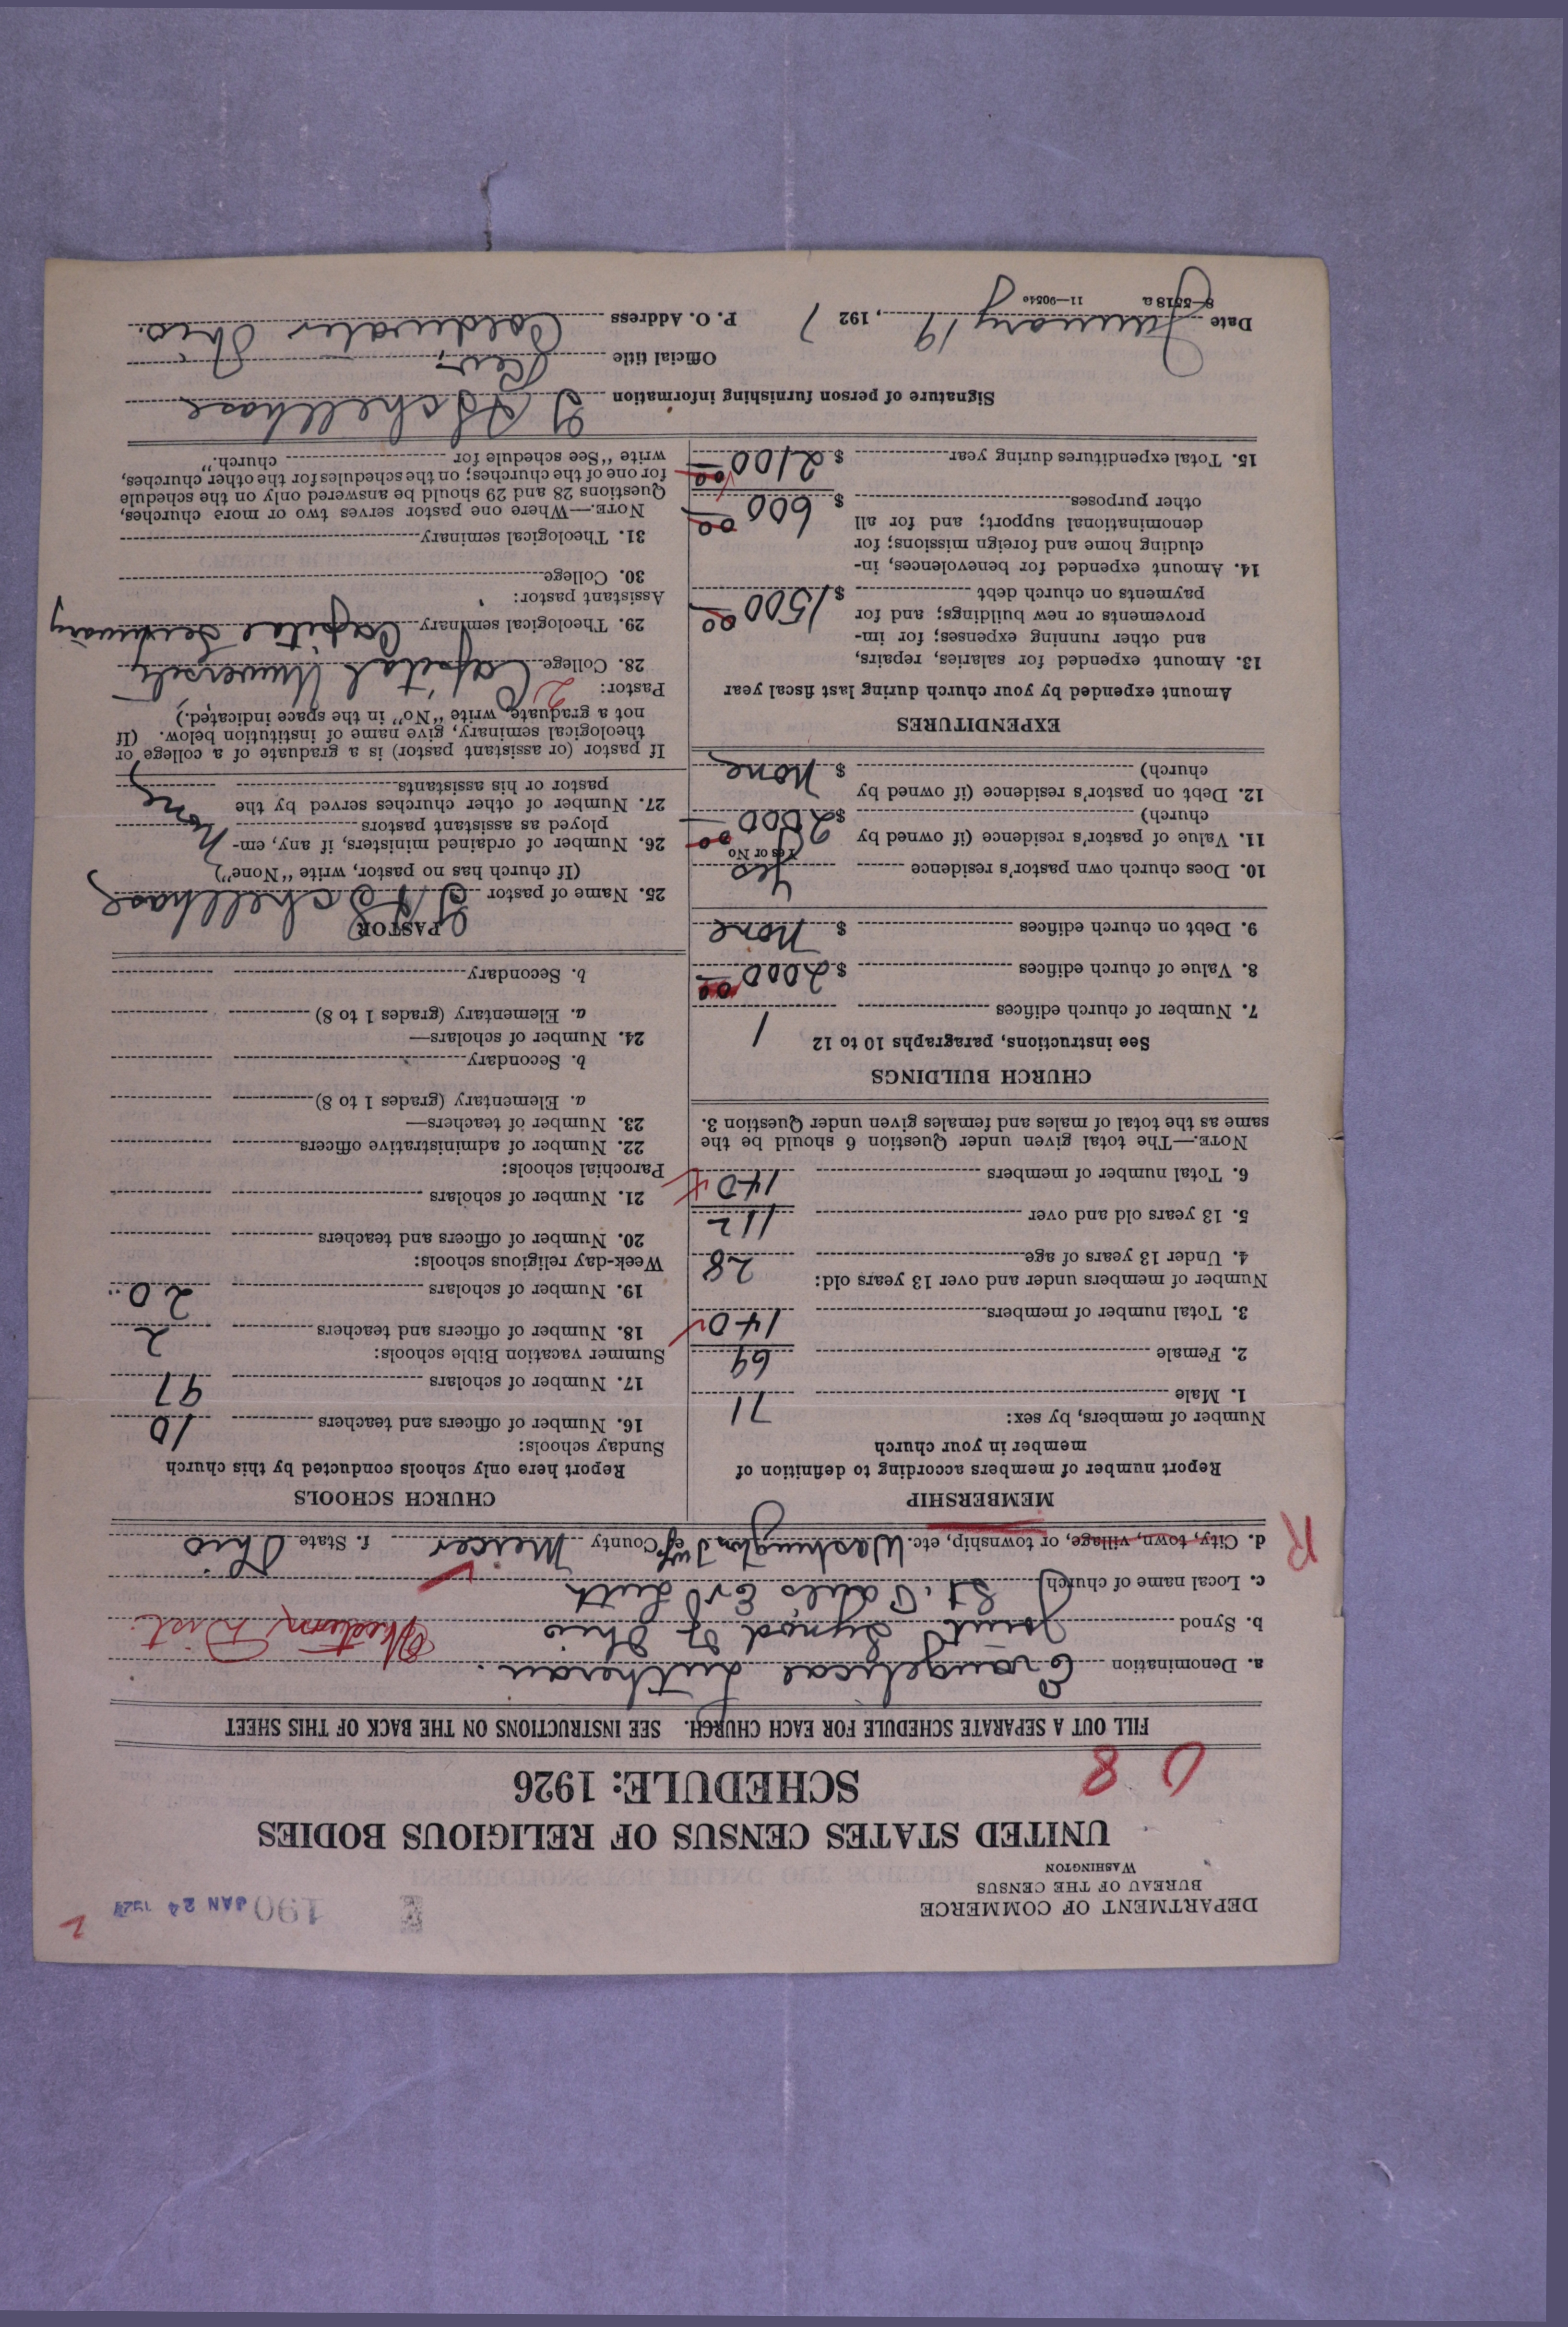 DEPARTMENT OF COMMERCE
BUREAU OF THE CENSUS
WASHINGTON
190 JAN 24 1927
UNITED STATES CENSUS OF RELIGIOUS BODIES
SCHEDULE: 1926
0 8
FILL OUT A SEPARATE SCHEDULE FOR EACH CHURCH. SEE INSTRUCTIONS ON THE BACK OF THIS SHEET
a. Denomination Evangelical Lutheran.
b. Synod Joint Synod of Ohio Western Dist.
c. Local name of church St. Paul's Ev Luth
d. City, town, village, or township, etc. Washington Twp e. County Mercer f. State Ohio
R
MEMBERSHIP
Report number of members according to definition of
member in your church
Number of members, by sex:
1. Male 71
2. Female 69
3. Total number of members 140
Number of members under and over 13 years old:
4. Under 13 years of age 28
5. 13 years old and over 112
6. Total number of members 140
NOTE.—The total given under Question 6 should be the
same as the total of males and females given under Question 3.
CHURCH BUILDINGS
See instructions, paragraphs 10 to 12
7. Number of church edifices 1
8. Value of church edifices $ 2000 00
9. Debt on church edifices $ None
10. Does church own pastor's residence Yes
Yes or No
11. Value of pastor's residence (if owned by
church) $ 2000 00
12. Debt on pastor's residence (if owned by
church) $ None
EXPENDITURES
Amount expended by your church during last fiscal year
13. Amount expended for salaries, repairs,
and other running expenses; for im-
provements or new buildings; and for
payments on church debt $ 1500 00
14. Amount expended for benevolences, in-
cluding home and foreign missions; for
denominational support; and for all
other purposes $ 600 00
15. Total expenditures during year $ 2100 00
CHURCH SCHOOLS
Report here only schools conducted by this church
Sunday schools:
16. Number of officers and teachers 10
17. Number of scholars 97
Summer vacation Bible schools:
18. Number of officers and teachers 2
19. Number of scholars 20
Week-day religious schools:
20. Number of officers and teachers
21. Number of scholars
Parochial schools:
22. Number of administrative officers
23. Number of teachers—
a. Elementary (grades 1 to 8)
b. Secondary
24. Number of scholars—
a. Elementary (grades 1 to 8)
b. Secondary
PASTOR
25. Name of pastor Schellhase
(If church has no pastor, write "None")
26. Number of ordained ministers, if any, em-
ployed as assistant pastors None
27. Number of other churches served by the
pastor or his assistants
If pastor (or assistant pastor) is a graduate of a college or
theological seminary, give name of institution below. (If
not a graduate, write "No" in the space indicated.)
Pastor:
28. College Capital University
29. Theological seminary Capital Seminary
Assistant pastor:
30. College
31. Theological seminary
NOTE.—Where one pastor serves two or more churches,
Questions 28 and 29 should be answered only on the schedule
for one of the churches; on the schedules for the other churches,
write "See schedule for church."
Signature of person furnishing information Schellhase
Official title Rev.
Date January 19, 1927 P. O. Address Coldwater Ohio.
8—5518 a 11—9054o